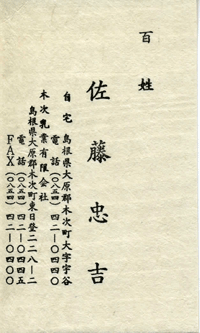 百姓
佐藤忠吉
自宅 島根県大原郡木次町大字宇谷
電話(〇八五四)四二-〇四〇〇
木次乳業有限会社
島根県大原郡木次町東日登二二八-二
電話(〇八五四)四二-〇四四五
FAX(〇八五四)四二-〇四〇〇